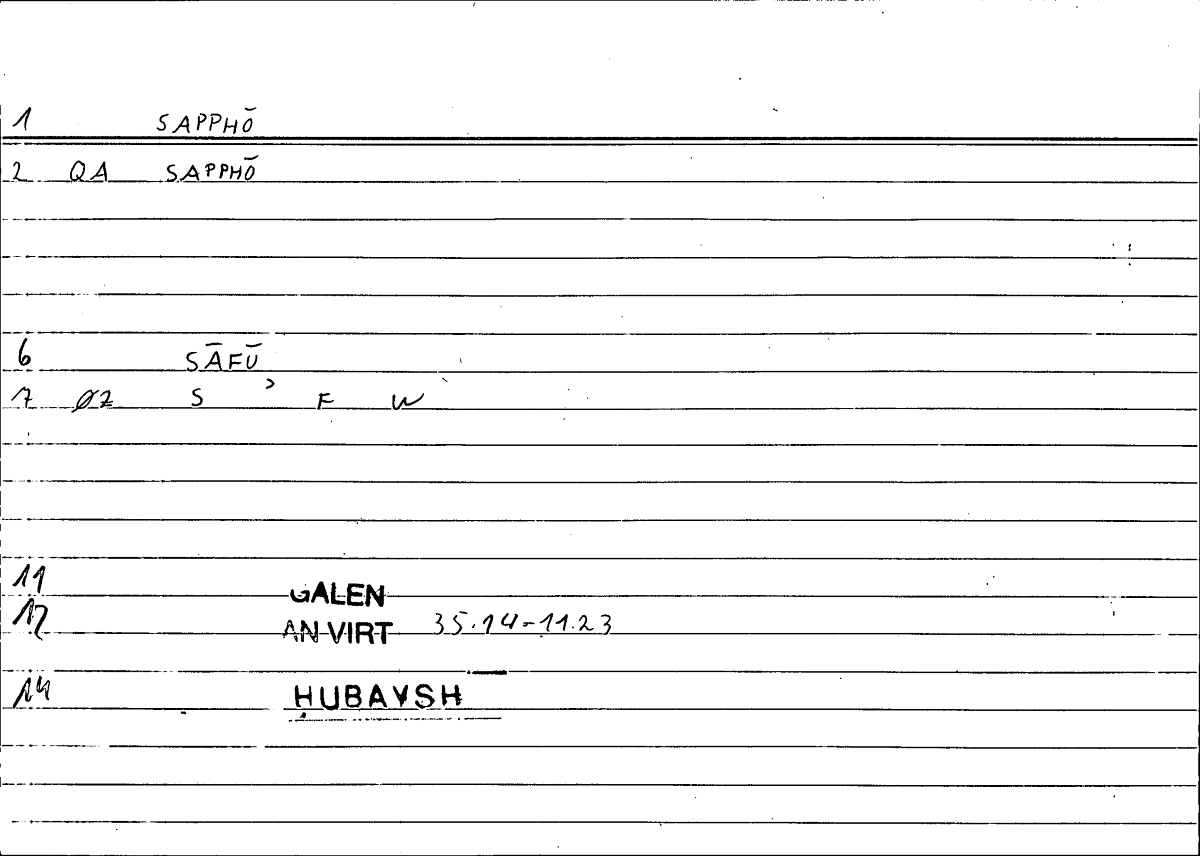 1 SAPPHŌ
2 QA SAPPHŌ
6 SĀFŪ
7 ØZ S ʾ F W
11 GALEN
12 AN VIRT 35.14-11.23
14 ḤUBAYSH